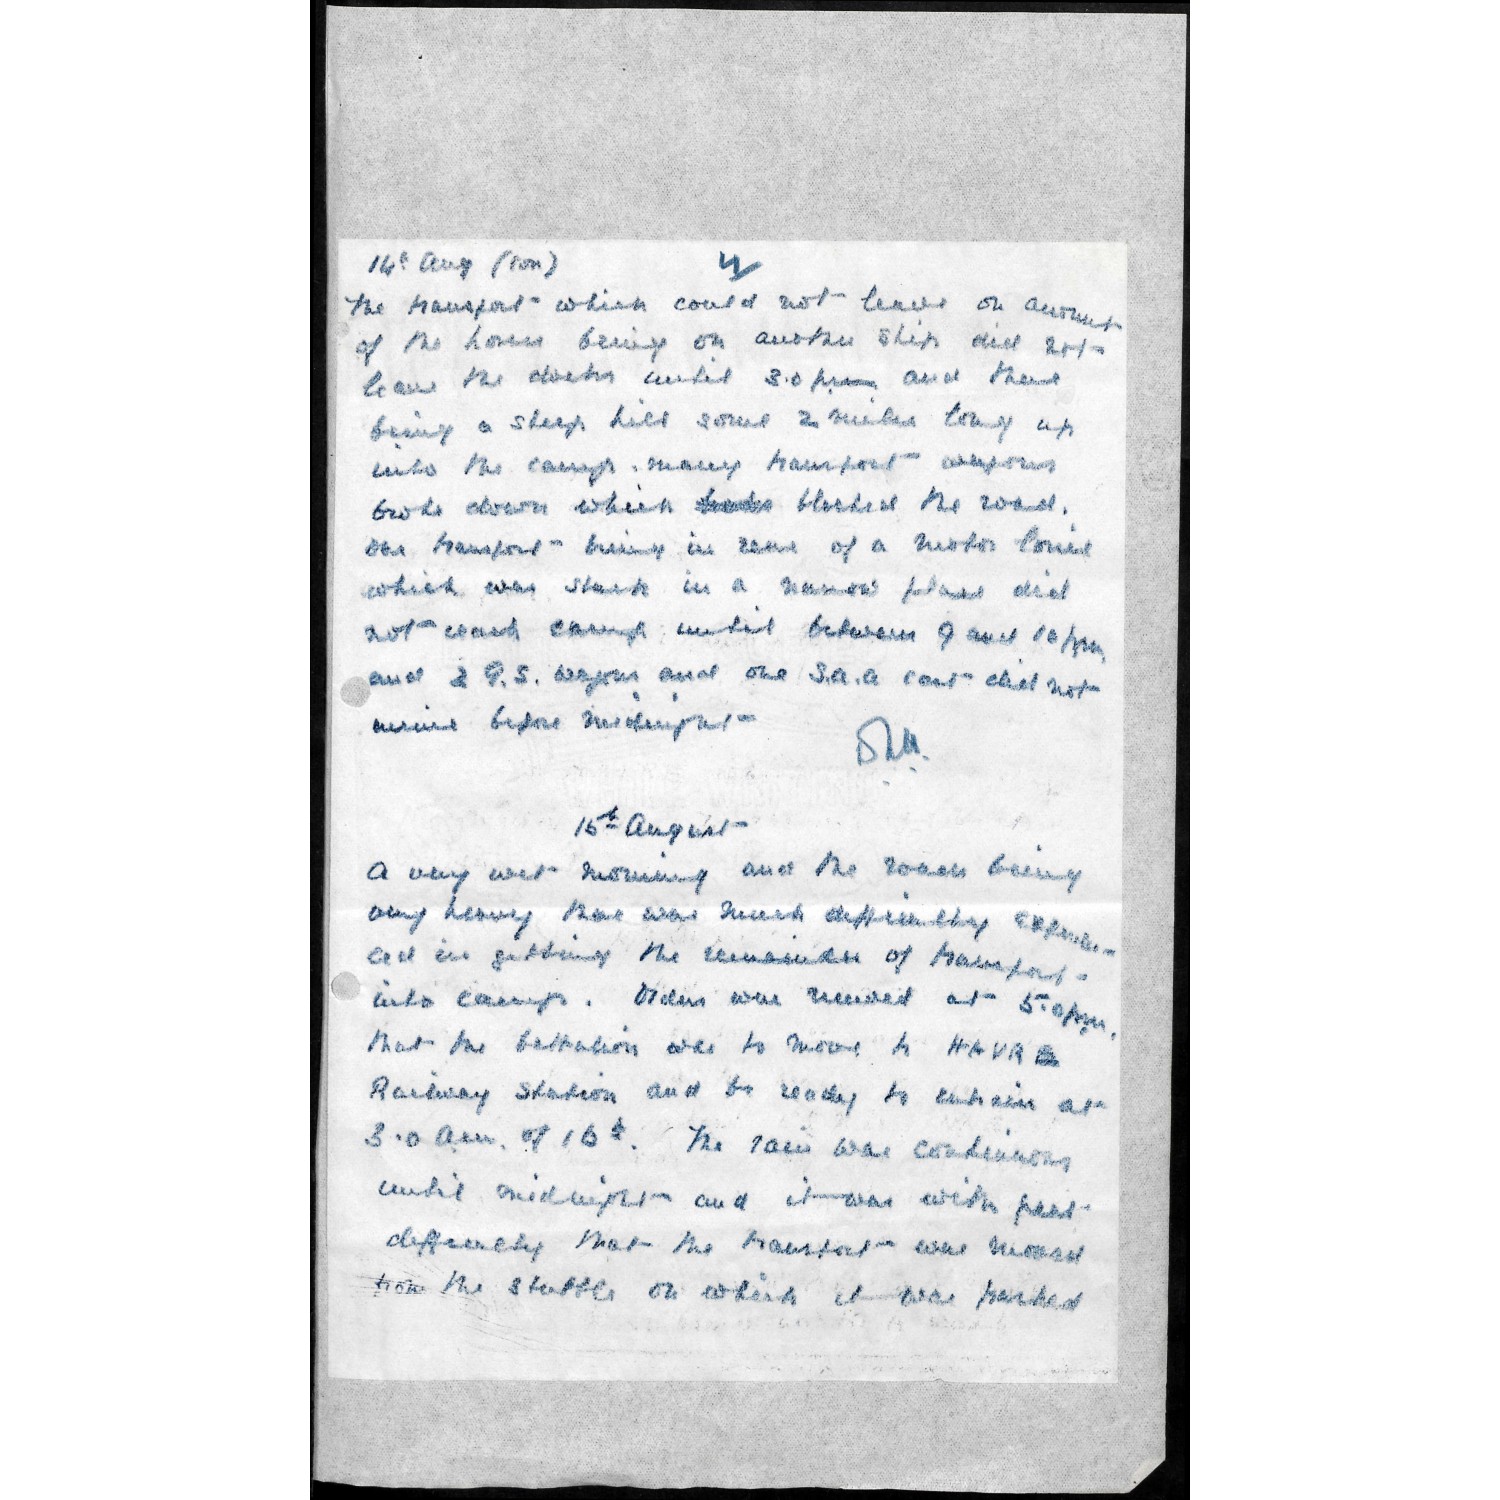 14th Aug (con)
4
The transport which could not leave on account
of the horses being on another ship did not
leave the docks until 3.0 pm and there
being a steep hill some 2 miles long up
into the camp. many transport wagons
broke down which blocked the road.
Our transport being in rear of a motor lorrie
which was stuck in a narrow place did
not reach camp until between 9 and 10 pm
and 2 G.S. wagons and one S.A.A cart did not
arrive before midnight
15th August
A very wet morning and the roads being
very heavy there was much difficulty experien-
ced in getting the remainder of transport
into camp. Orders were received at 5.0 pm.
that the battalion was to move to HAVRE
Railway Station and be ready to entrain at
3.0 am. of 16th. The rain was continuous
until midnight and it was with great
difficulty that the transport was moved
from the stubble on which it was parked